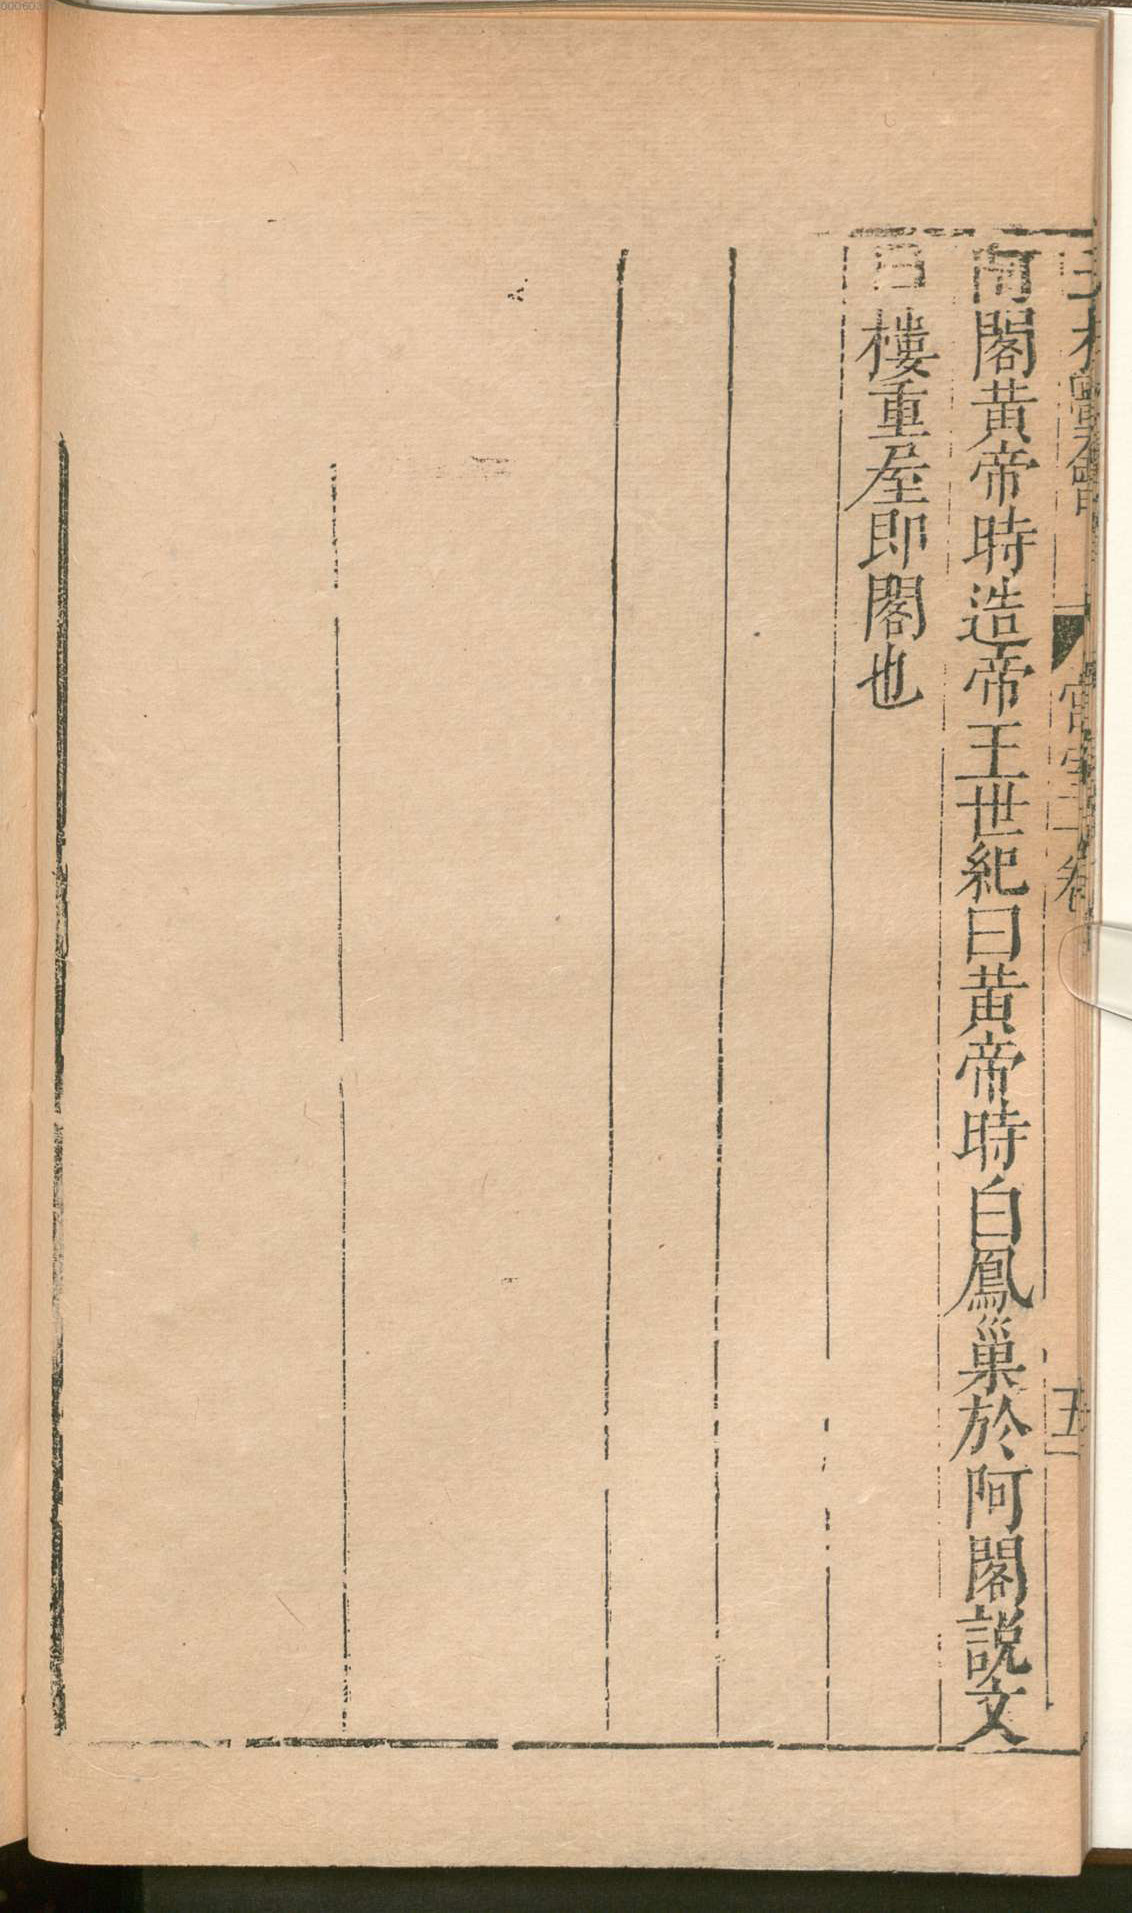 三才圖會
宮室二卷
五
阿閣黄帝時造帝王世紀曰黄帝時白鳳巢於阿閣說文
曰樓重屋即閣也